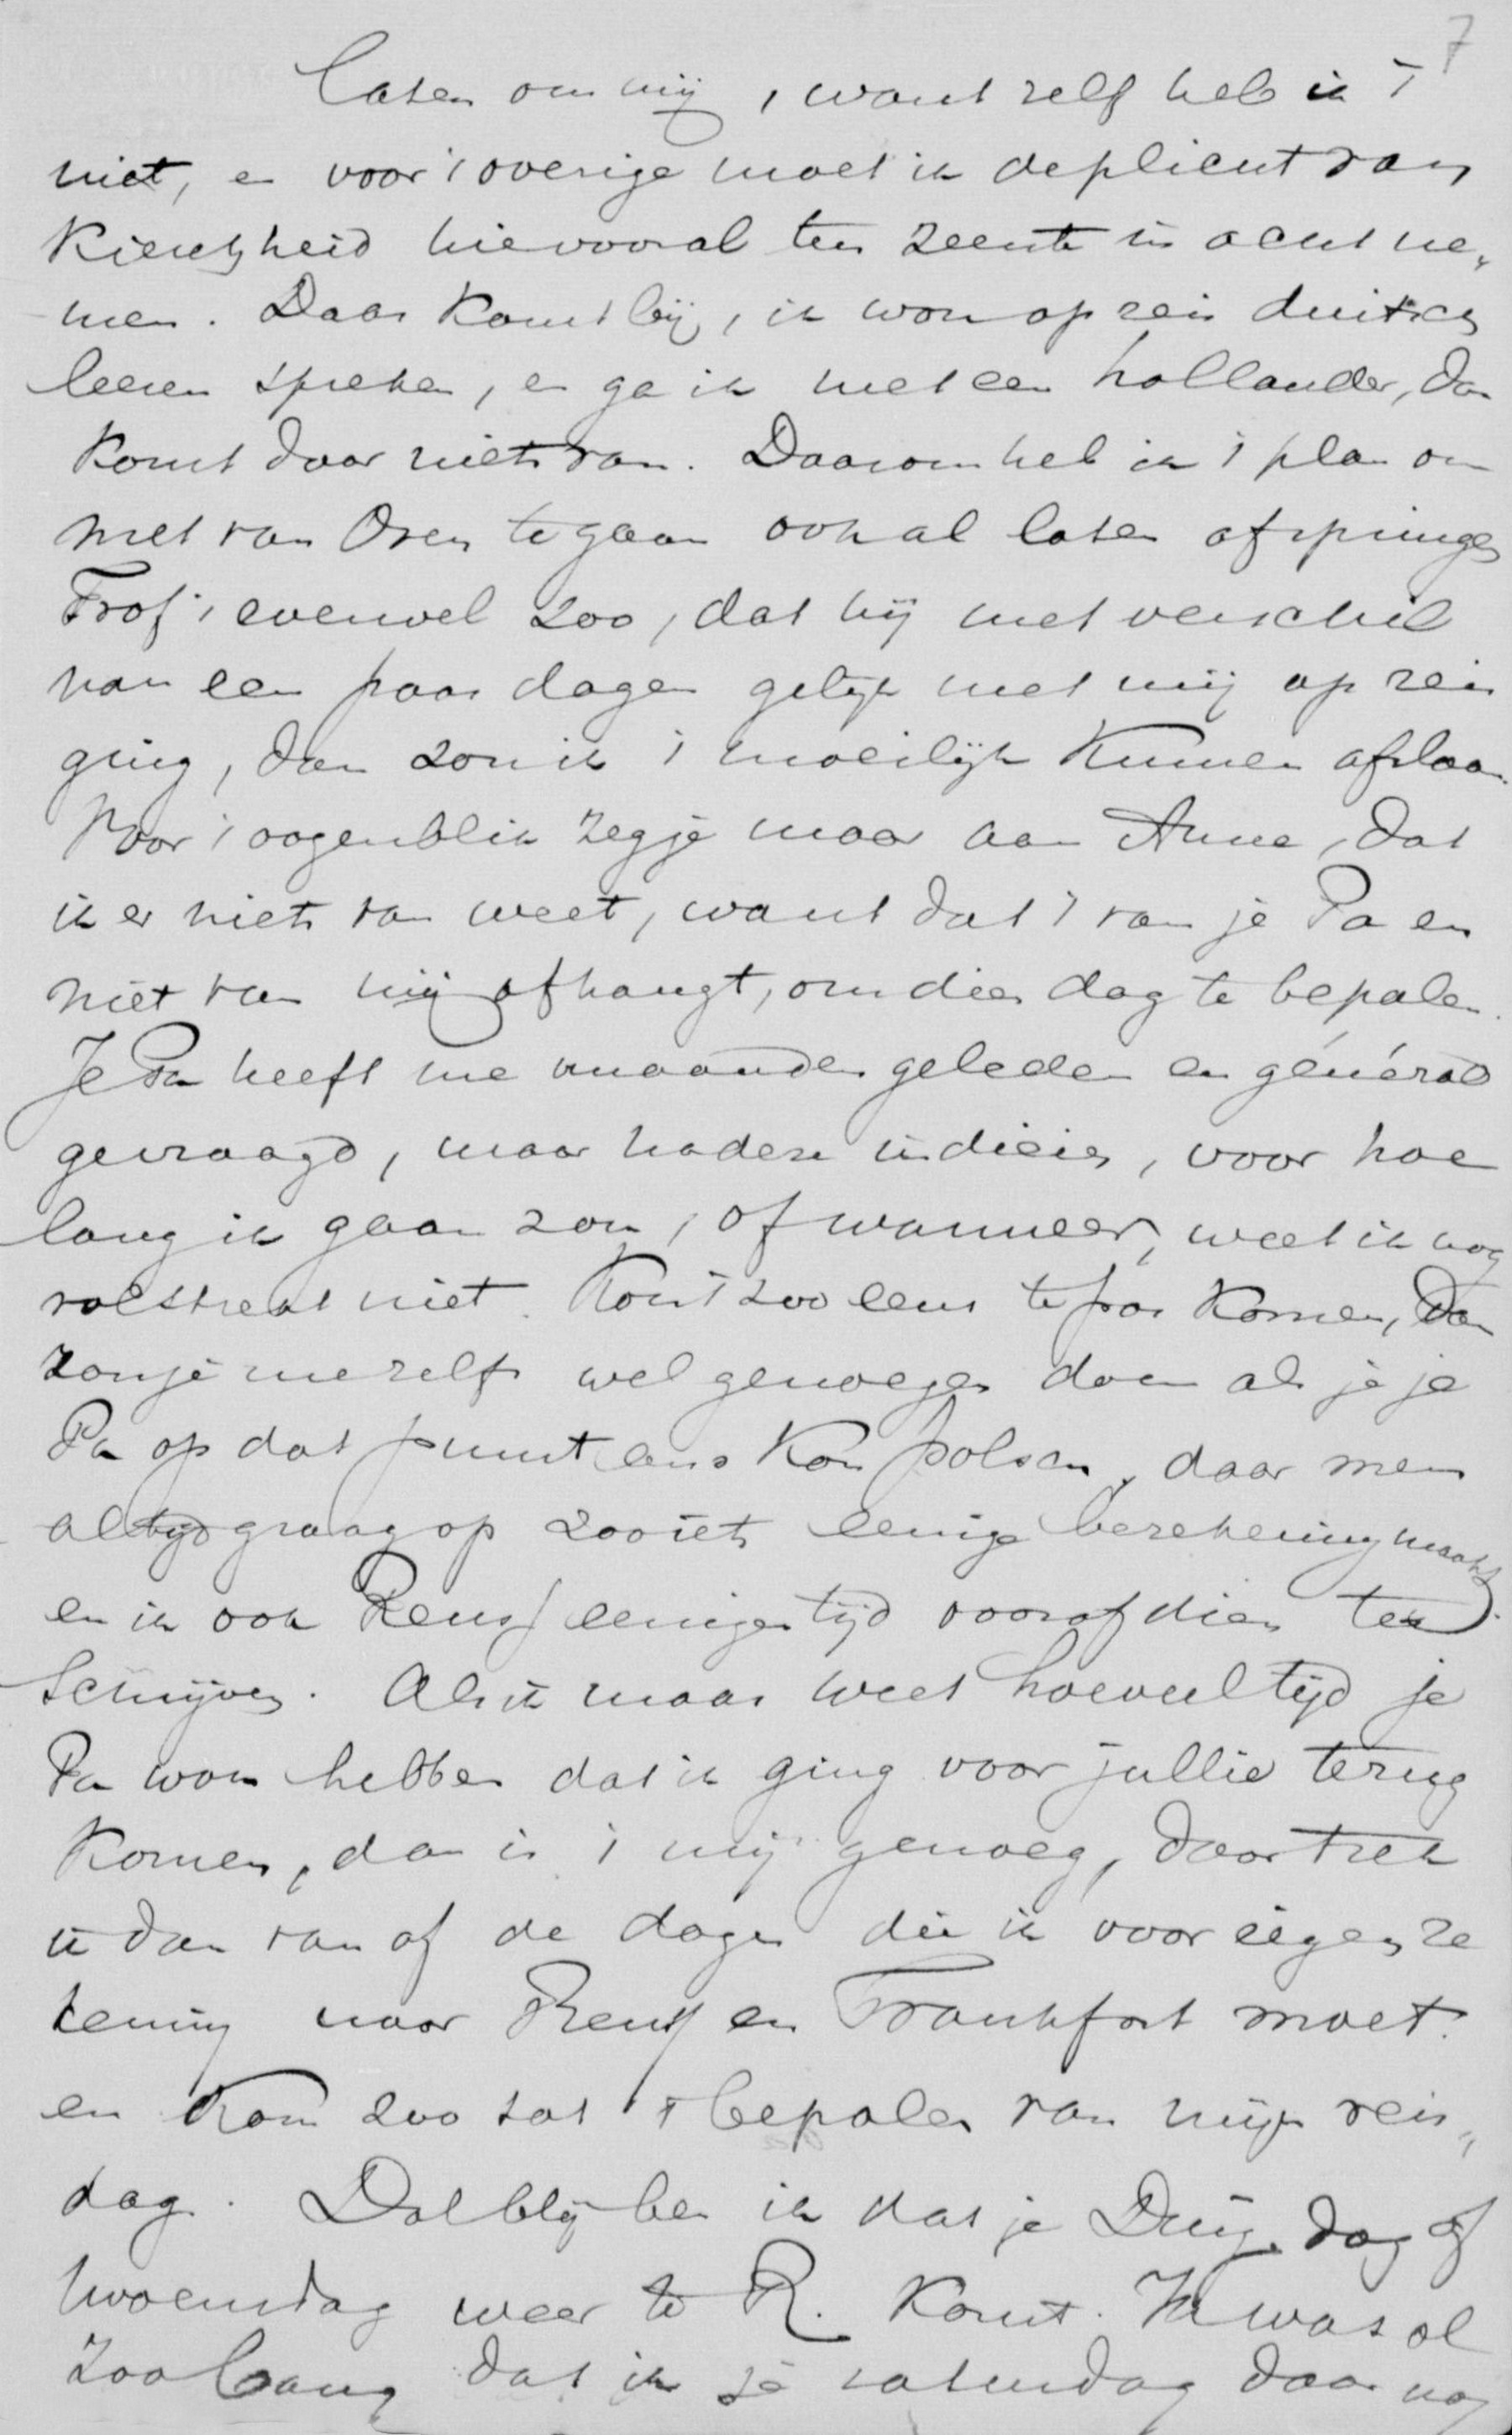 7
laten om mij, want zelf heb ik 't
niet, en voor 't overige moet ik de plicht van
kieschheid hievooral ten zeerste in acht ne-
men. Daar komt bij, ik wou op reis duitsch
leeren spreken, en ga ik met een hollander, dan
komt daar niets van. Daarom heb ik 't plan om
met van Oven te gaan ook al laten afspringen
Trof 't evenwel zoo, dat hij met verschil
van een paar dagen gelijk met mij op reis
ging, dan zou ik 't moeilijk kunnen afslaan.
Voor 't oogenblik zeg je maar aan Anna, dat
ik er niets van weet, want dat 't van je Pa en
niet van mij afhangt, om dien dag te bepalen.
Je Pa heeft me maanden geleden en général
gevraagd, maar nadere indicien, voor hoe
lang ik gaan zou, of wanneer, weet ik nog
volstrekt niet. Kon 't zoo eens te pas komen, dan
zou je me zelfs wel genoegen doen als je je
Pa op dat punt eens kon polsen, daar men
altijd graag op zooiets eenige berekening maakt
en ik ook Reuss eenigen tijd vooraf dien te
schrijven. Als ik maar weet hoeveel tijd je
Pa wou hebben dat ik ging voor jullie terug
komen, dan is 't mij genoeg, daar trek
ik dan van af de dagen die ik voor eigen re
kening naar Reuss en Frankfort moet.
en kom zoo tot 't bepalen van mijn reis-
dag. Dolblij ben ik dat je Dingsdag of
woensdag weer te R. komt. Ik was al
zoo bang dat ik je saturdag daar nog